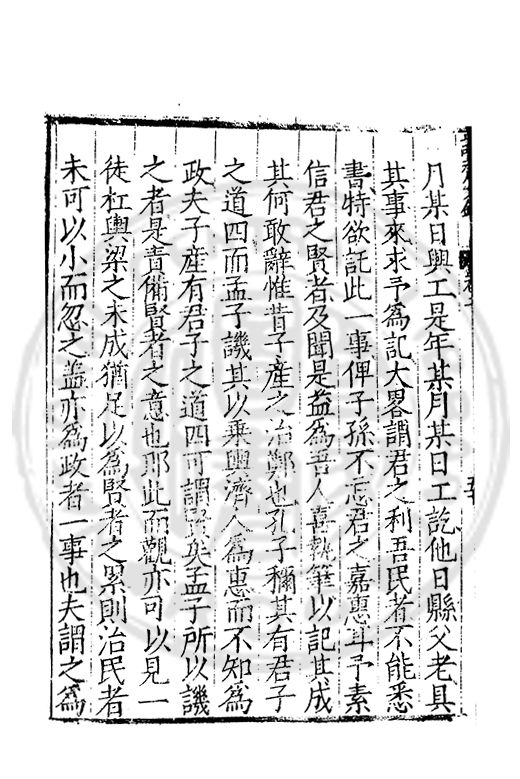 月某日興工是年某月某日工訖他日縣父老具
其事來求予為記大畧謂君之利吾民者不能悉
書特欲託此一事俾子孫不忘君之嘉惠耳予素
信君之賢者及聞是益為吾人喜執筆以記其成
其何敢辭惟昔子產之治鄭也孔子稱其有君子
之道四而孟子譏其以乗輿濟人為惠而不知為
政夫子產有君子之道四可謂賢矣孟子所以譏
之者是責備賢者之意也那此而觀亦可以見一
徒杠輿梁之未成猶足以為賢者之累則治民者
未可以小而忽之盖亦為政者一事也夫謂之為